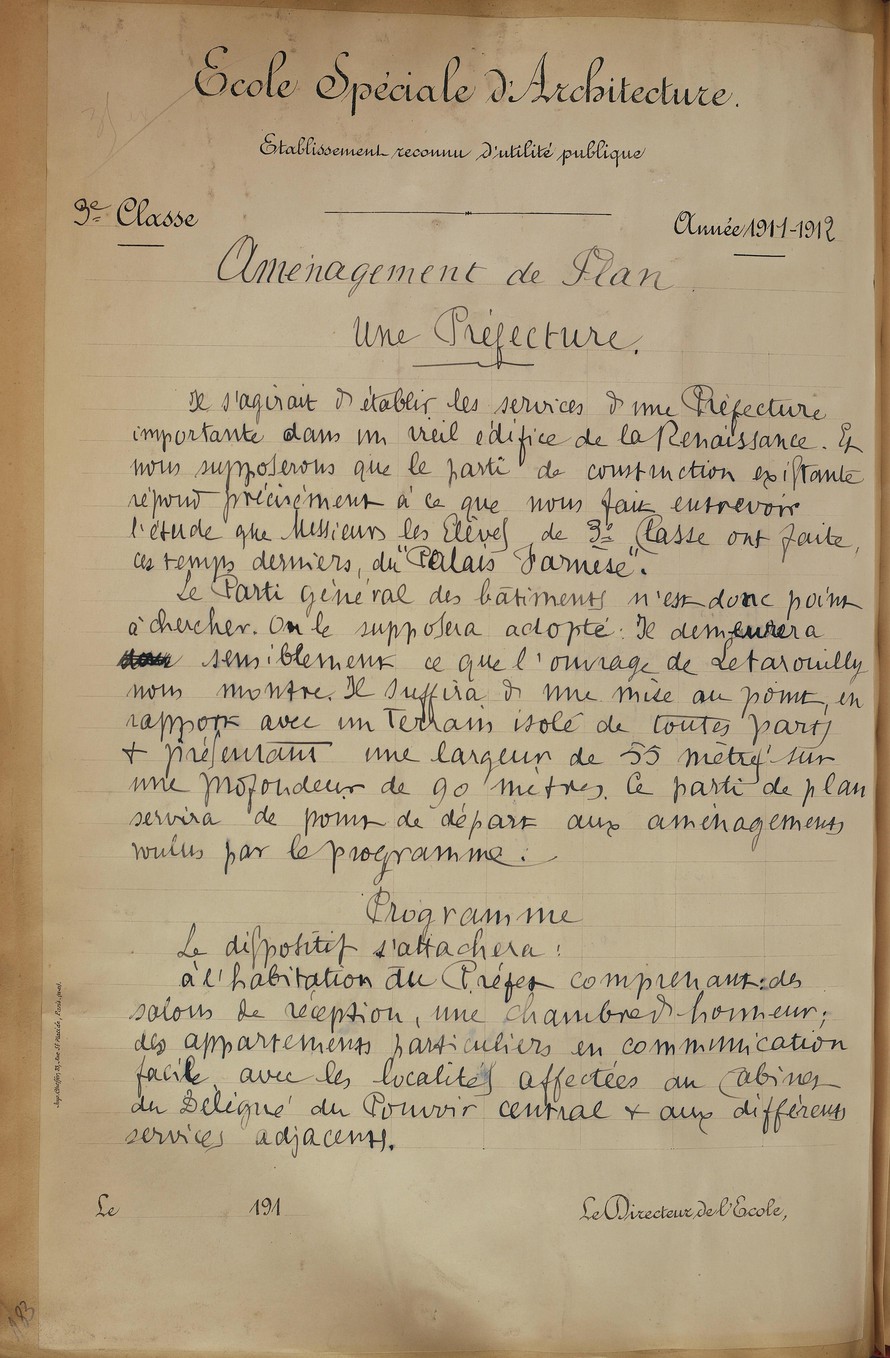 Ecole Spéciale d'Architecture.
Etablissement reconnu d'utilité publique
3e Classe
Année 1911-1912
Aménagement de Plan
Une Préfecture.
Il s'agirait d'établir les services d'une Préfecture
importante dans un vieil édifice de la Renaissance. Et
nous supposerons que le parti de construction existante
répond précisément à ce que nous fait entrevoir
l'étude que Messieurs les Elèves de 3e Classe ont faite,
ces temps derniers, du "Palais Farnèse".
Le Parti général des bâtiments n'est donc point
à chercher. On le supposera adopté. Il demeurera
sensiblement ce que l'ouvrage de Letarouilly
nous montre. Il suffira d'une mise au point, en
rapport avec un Terrain isolé de toutes parts
& présentant une largeur de 55 mètres sur
une profondeur de 90 mètres. Ce parti de plan
servira de point de départ aux aménagements
voulus par le programme.
Programme
Le dispositif s'attachera :
à l'habitation du Préfet comprenant : des
salons de réception, une chambre d'honneur;
des appartements particuliers en communication
facile avec les localités affectées au Cabinet
du Délégué du Pouvoir central & aux différents
services adjacents.
Le 191
Le Directeur de l'Ecole,